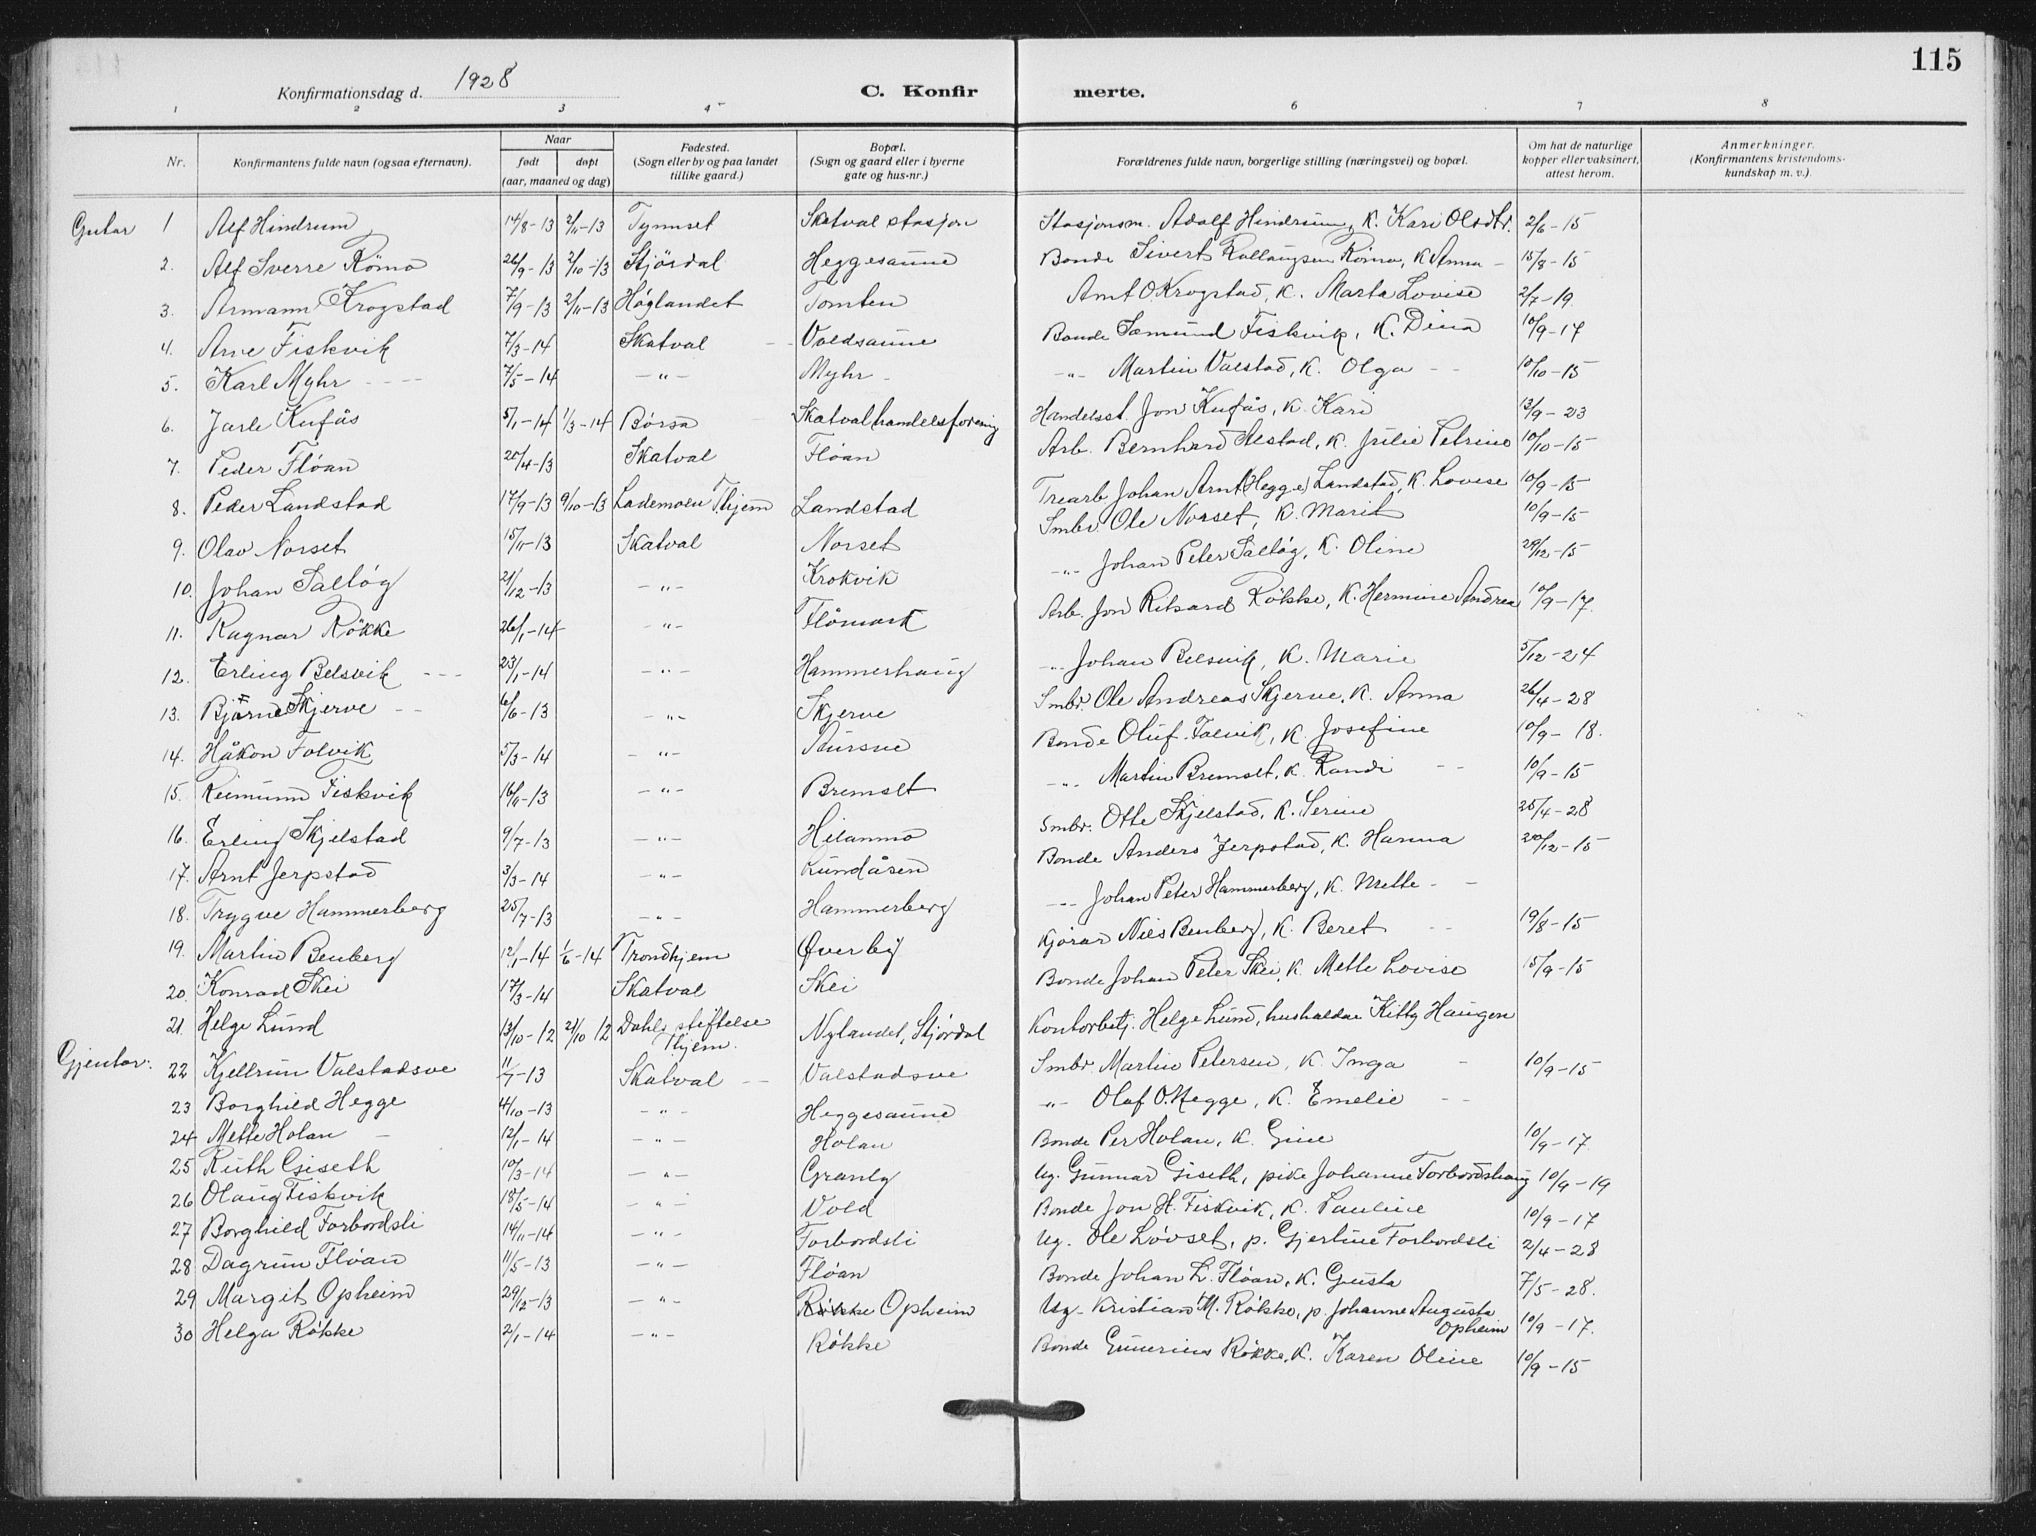 115
Konfirmationsdag d. 1928 C. Konfir merte.
1 2 3 4 6 7 8
Nr. Konfirmantens fulde navn (ogsaa efternavn). Naar født døpt (aar, maaned og dag) Fødested. (Sogn eller by og paa landet tillike gaard.) Bopæl. (Sogn og gaard eller i byerne gate og hus-nr.) Forældrenes fulde navn, borgerlige stilling (næringsvei) og bopæl. Om hat de naturlige kopper eller vaksinert, attest herom. Anmerkninger. (Konfirmantens kristendoms- kundskap m. v.).
Gutar 1 Alf Hindrum 14/8-13 2/11-13 Tynnset Skatval stasjon Stasjonsm. Adolf Hindrum, K. Kari Olsdtr. 2/6-15
2. Alf Sverre Römo 26/9-13 2/10-13 Stjørdal Heggesaune Bonde Sivert Römo, K Anna - 15/8-15
3. Armann Krogstad 7/9-13 2/11-13 Høglandet Tomten Arnt O Krogstad, K. Marta Lovise 2/7-19
4. Arne Fiskvik 7/3-14 Skatval Voldsaune Bonde Sæmund Fiskvik, K. Dina 10/9-17
5. Karl Myhr 7/5-14 -"- Myhr -"- Martin Valstad, K. Olga 10/10-15
6. Jarle Kufås 5/1-14 1/3-14 Børsa Skatval handelsforening Handelsst. Jon Kufås, K. Kari 13/9-23
7. Peder Flóan 20/4-13 Skatval Flóan Arb. Bernhard Alstad, K. Julie Petrine 10/10-15
8. Peder Landstad 17/9-13 9/10-13 Lademoen Thjem Landstad Trearb Johan Arnt (Hegge) Landstad, K. Lovise 10/9-15
9. Olav Norset 15/11-13 Skatval Norset Smbr. Ole Norset, K. Marit 10/9-15
10. Johan Saltóg 21/12-13 -"- Krokvik -"- Johan Peter Saltóg, K. Oline 29/12-15
11. Ragnar Rökke 26/1-14 -"- Flómark Arb. Jon Rikard Rökke, K. Hermine Andrea 10/9-17
12. Erling Belsvik 23/1-14 -"- Hammerhaug -"- Johan Belsvik, K. Marie 5/12-24
13. Bjarne Skjerve 6/6-13 -"- Skjerve Smbr. Ole Andreas Skjerve, K. Anna 26/4-28
14. Håkon Folvik 5/3-14 -"- Aursve Bonde Oluf Folvik, K. Josefine 10/9-18.
15. Reimunn Fiskvik 16/11-13 -"- Bremset -"- Martin Bremset, K. Randi 10/9-15
16. Erling Skjelstad 9/7-13 -"- Hilanmo Smbr. Otte Skjelstad, K. Serine 25/4-28
17. Arnt Jerpstad 3/3-14 -"- Kundåsen Bonde Anders Jerpstad, K. Hanna 20/12-15
18. Trygve Hammerberg 25/7-13 -"- Hammerberg -"- Johan Peter Hammerberg, K. Mette
19. Martin Benberg 12/1-14 1/6-14 Trondhjem Øverby Kjørar Nils Benberg, K. Beret 19/8-15
20. Konrad Skei 17/3-14 Skatval Skei Bonde Johan Peter Skei, K. Mette Lovise 15/9-15
21. Helge Lund 13/10-12 21/10 12 Dahls stiftelse Thjem. Nylandet, Stjórdal Kontorbetj. Helge Lund, husholdar Kitty Haugen
Gjentor. 22 Kjellrun Valstadsve 11/7-13 Skatval Valstadsve Smbr Martin Petersen, K. Inga 10/9-15
23 Borghild Hegge 4/10-13 -"- Heggesaune -"- Olaf O. Hegge, K. Emelie
24 Mette Holan 12/1-14 -"- Holan Bonde Per Holan, K. Gine 10/9-17
25 Ruth Giseth 10/3-14 -"- Granly Ug. Gunnar Giseth, pike Johanne Forbordshaug 10/9-19
26 Olaug Fiskvik 18/5-14 -"- Vold Bonde Jon H. Fiskvik, K. Pauline 10/9-17
27 Borghild Forbordsli 14/11-14 -"- Forbordsli Ug. Ole Lóvset, p. Gjertine Forbordsli 2/4-28
28 Dagrun Flóan 11/5-13 -"- Flóan Bonde Johan L. Flóan, K. Gusta 7/5-28.
29 Margit Opheim 29/12-13 -"- Rókke Opheim Ug- Kristian M. Rókke, p. Johanne Augusta Opheim 10/9-17.
30 Helga Rókke 2/1-14 -"- Rókke Bonde Gunerius Rókke, K. Karen Oline 10/9-15